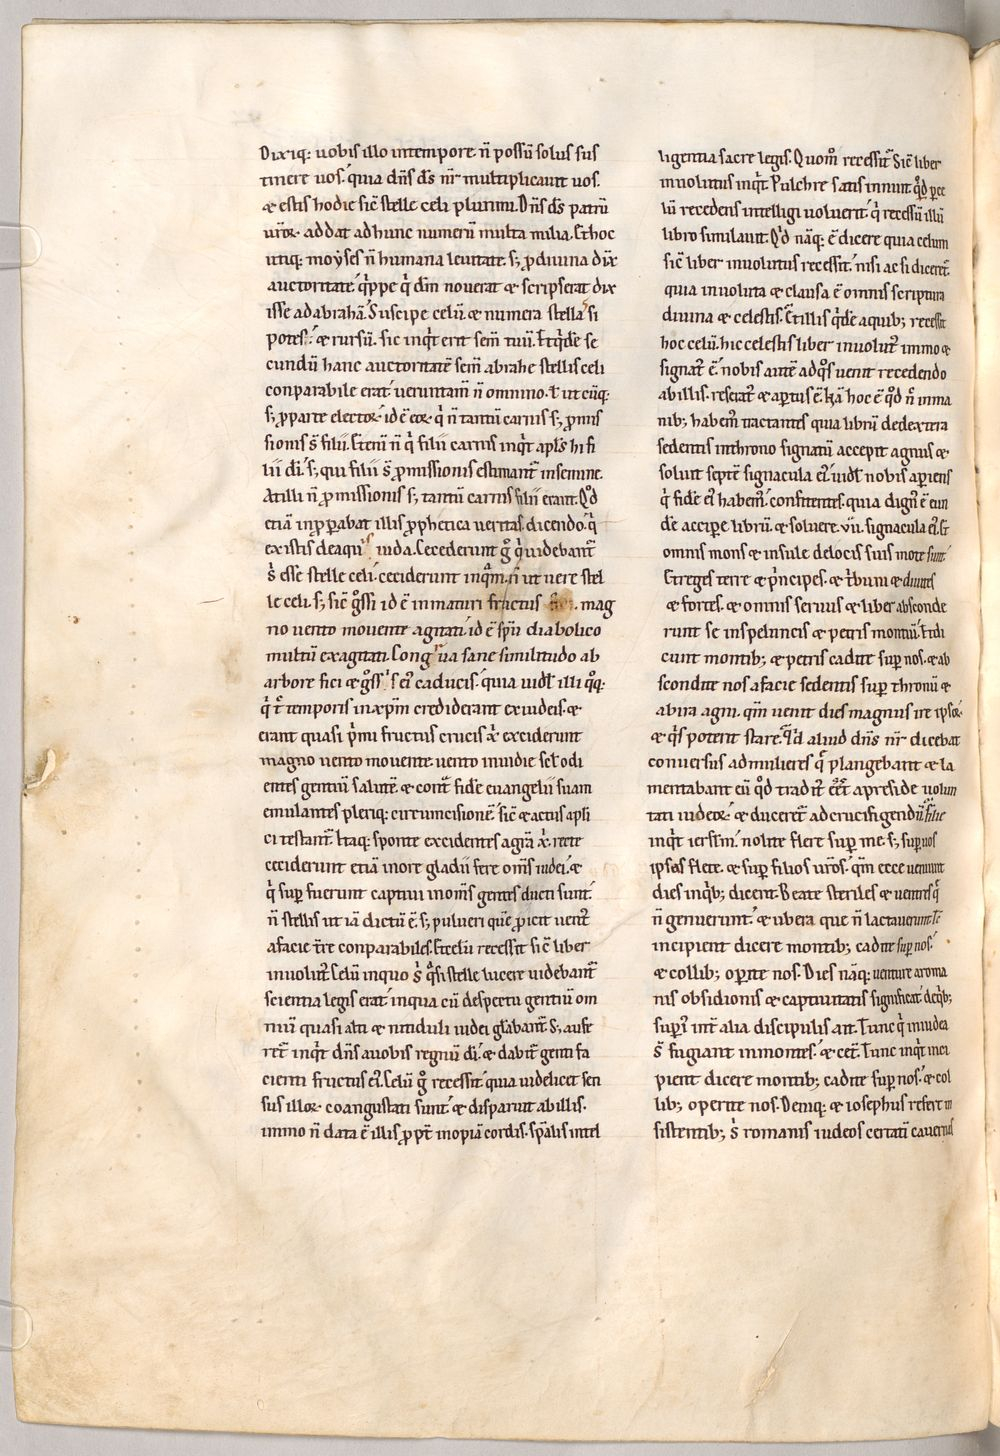 Dixiq: uobis illo intempore. n̄ possū solus sus
tinere uos. quia dn̄s d̄s nr̄ multiplicauit uos.
& estis hodie sic̄ stelle celi plurimi. Dn̄s d̄s patrū
uꝛ̄oꝝ addat adhunc numerū multa milia. Et hoc
utiq: moẏses n̄ humana leuitate. s; ꝓdiuina dix̄
auctoritate. q̄ppe q̄ dn̄m nouerat & scripserat dix
isse adabrahā. Suscipe celū. & numera stellas si
potes. & rursū. sic inqͥt erit sem̄ tuū. Et qͥde se
cundū hanc auctoritatē sem̄ abrahe stellis celi
conparabile erat. ueruntam̄ n̄ omnino. t ut cūq:
s; ꝓparte electoꝝ. id ē eoꝝ qͥ n̄ tantū carnis s; ꝓmis
sionis s̄ filii. Etenī n̄ qͥ filii carnis inqͥt apl̄s hi fi
lii di. s; qui filii s̄ ꝓmissionis estimant̄ insemine.
At illi n̄ ꝓmissionis s; tantū carnis filii erant. Qͦd
etiā inꝓꝑabat illis ꝓphetica ueritas. dicendo. qͥ
existis deaquis iuda. Cecederunt gͦ qͥ uidebant̄
s̄ esse stelle celi. ceciderunt inqͣm. n̄ ut uere stel
le celi. s; sic̄ gͦssi id ē inmaturi fructus mag
no uento mouente agitati. id ē spū diabolico
multū exagitati. Congrua sane similitudo ab
arbore fici & gͦssis eͥ caducis. quia uidl̄ illi qͦq:
qͥ t̄ temporis inxp̄m crediderant exiudeis. &
erant quasi pͥmi fructus crucis xͥ exciderunt
magno uento mouente. uento inuidie scl̄ odi
entes gentiū salutē. & cont̄ fidē euangelii suam
emulantes pleriq: circumcisionē. sic̄ & actus apl̄i
ci testant̄. Itaq: sponte excidentes agrā xͥ. recte
ceciderunt etiā inore gladii fere om̄s iudei. &
qͥ suꝑ fuerunt captiui inom̄s gentes ducti sunt.
n̄ stellis ut iā dictū ē. s; pulueri quē ꝓicit uent᷒
afacie tr̄e conparabiles. Et celū recessit sic̄ liber
inuolut᷒. Celū inquo s̄ qͣsi stelle lucere uidebant̄
scientia legis erat. inqua cū despectu gentiū om
niū quasi alti & nitiduli iudei gl̄abant̄. S; aufe
ret̄ inqͥt dn̄s auobis regnū di. & dabit̄ genti fa
cienti fructus eͥ. Celū gͦ recessit. quia uidelicet sen
sus illoꝝ coangustati sunt. & disparuit abillis.
immo n̄ data ē illis ꝓpt̄ inopiā cordis. sp̄alis intel
ligentia sacre legis. Quom̄ recessit. Sic̄ liber
inuolutus inqͥt. Pulchre satis innuit qͥd ꝑce
lū recedens intelligi uoluerit. qͥ recessū illū
libro simulauit. Qͥd nāq: ē dicere quia celum
sic̄ liber inuolutus recessit. nisi ac si diceret̄.
quia inuoluta & clausa ē omnis scriptura
diuina & celestis. Et illis qͥde aquib; recessit
hoc celū. hic celestis liber inuolut᷒ immo &
signat᷒ ē. nobis autē adqͦs uenit recedendo
abillis. reserat᷒ & aꝑtus ē. Nā hoc ē qͦd n̄ inma
nib; habem᷒ tractantes quia librū dedextera
sedentis inthrono signatū accepit agnus &
soluit septē signacula eͥ. uidl̄ nobis aꝑiens
qͥ fidē eͥ habem᷒. confitentes. quia dign᷒ ē eun
dē accipe librū. & soluere .vii. signacula eͥ. Et
omnis mons & insule delocis suis mote sunt.
Et reges terre & pͥncipes. & tͥbuni & diuites
& fortes. & omnis seruus & liber absconde
runt se inspeluncis & petris montiū. Et di
cunt montib; & petris cadite suꝑ nos. & ab
scondite nos afacie sedentis suꝑ thronū &
abira agni. qm̄ uenit dies magnus ire ipsoꝝ.
& qͥs poterit stare. Qͥd aliud dn̄s nr̄ dicebat
conuersus admulieres qͥ plangebant & la
mentabant eū qͦd tradit᷒ ēēt apreside uolun
tati iudeoꝝ. & duceret̄ adcrucifigendū. filie
inqͥt ierl̄m. nolite flere suꝑ me. s; suꝑ uos
ipsas flete. & suꝑ filios ur̄os. qm̄ ecce uenient
dies inqͥb; dicent. Beate steriles & uentres qͥ
n̄ genuerunt. & ubera que n̄ lactauerunt. Tc̄
incipient dicere montib; cadite suꝑ nos.
& collib; oꝑite nos. Dies nāq: uenture aroma
nis obsidionis & captiuitatis significat. deqͥb;
suꝑͥ int̄ alia discipulis ait. Tunc qͥ iniudea
s̄ fugiant inmontes. & cet̄. Tunc inqͥt inci
pient dicere montib; cadite suꝑ nos. & col
lib; operite nos. Deniq: & iosephus refert in
sistentib; s̄ romanis iudeos certatī cauernis